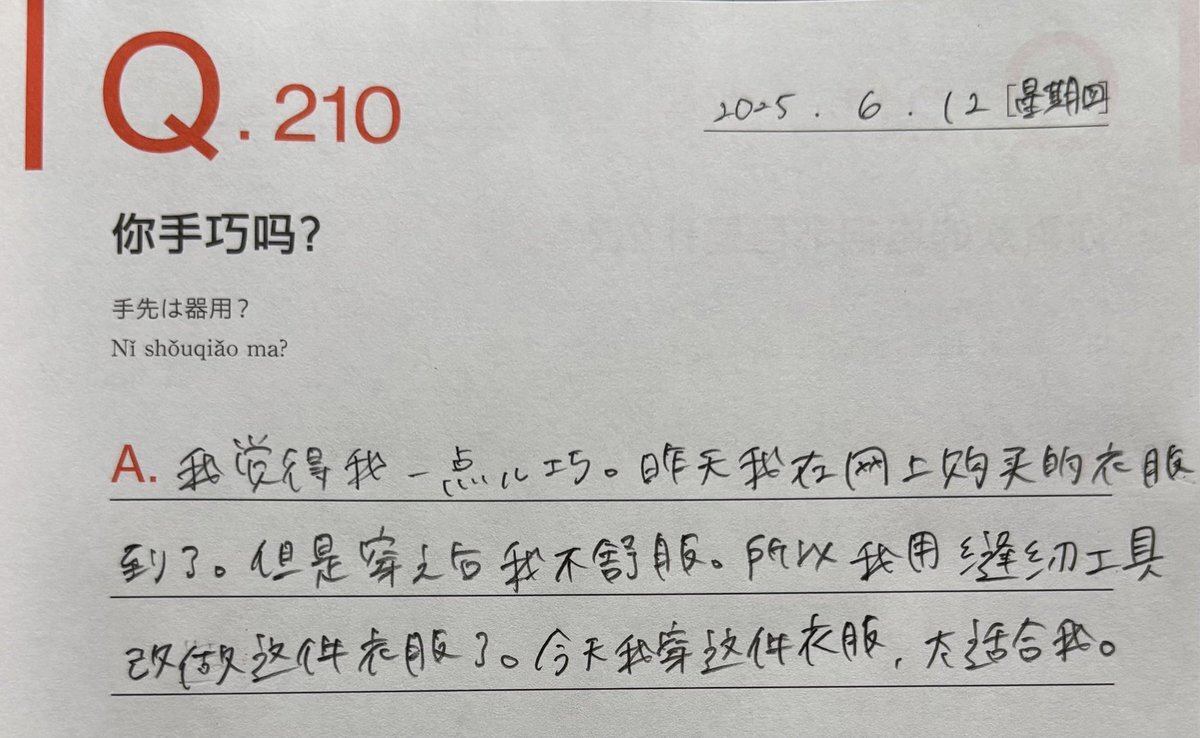 Q.210
2025.6.12[星期四]
你手巧吗?
手先は器用？
Nǐ shǒuqiǎo ma?
A. 我觉得我一点儿巧。昨天我在网上购买的衣服
到了。但是穿之后我不舒服。所以我用缝纫工具
改做这件衣服了。今天我穿这件衣服,太适合我。